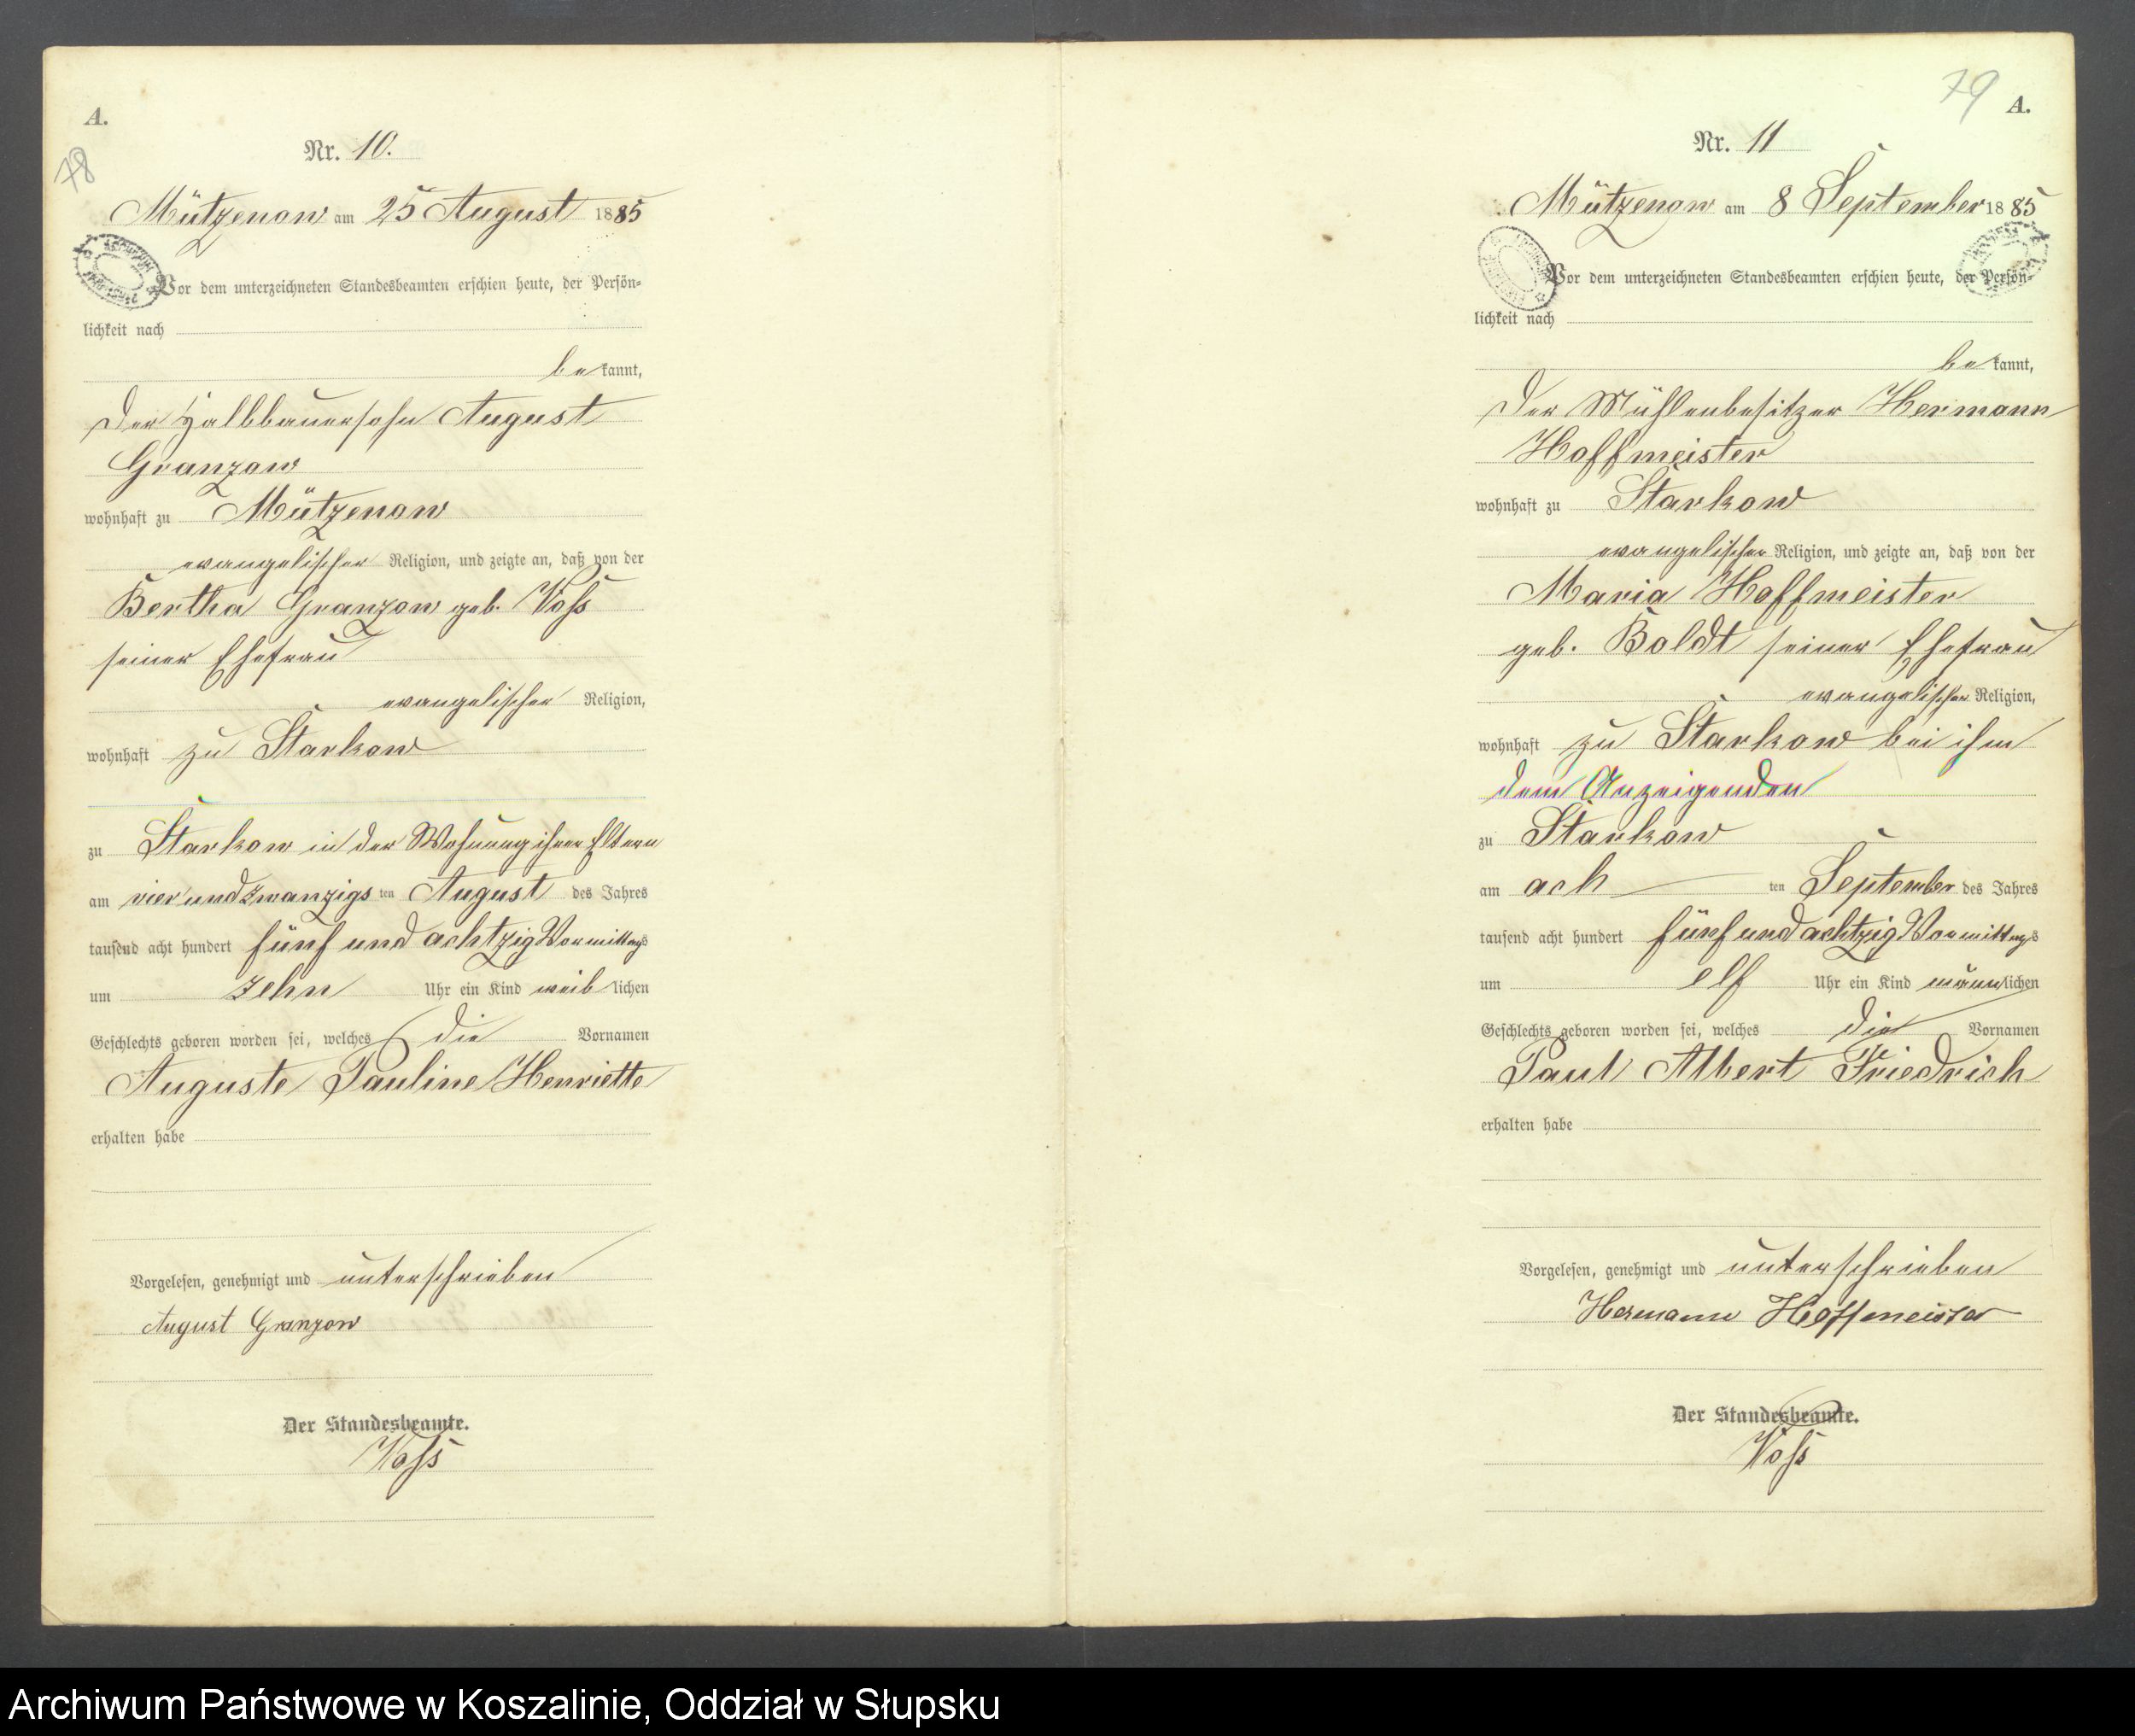 A.
78
Nr. 10.
Mützenow am 25 August 1885
Vor dem unterzeichneten Standesbeamten erschien heute, der Persön-
lichkeit nach
bekannt,
der Halbbauersohn August
Granzow
wohnhaft zu Mützenow
evangelischer Religion, und zeigte an, daß von der
Bertha Granzow geb. Voss
seiner Ehefrau
evangelischer Religion,
wohnhaft zu Starkow
zu Starkow in der Wohnung ihrer Eltern
am vier und zwanzigsten August des Jahres
tausend acht hundert fünf und achtzig Vormittags
um zehn Uhr ein Kind weiblichen
Geschlechts geboren worden sei, welches die Vornamen
Auguste Pauline Henriette
erhalten habe
Vorgelesen, genehmigt und unterschrieben
August Granzow
Der Standesbeamte.
Voss
79
A.
Nr. 11
Mützenow am 8 September 1885
Vor dem unterzeichneten Standesbeamten erschien heute, der Persön-
lichkeit nach
bekannt,
der Mühlenbesitzer Hermann
Hoffmeister
wohnhaft zu Starkow
evangelischer Religion, und zeigte an, daß von der
Maria Hoffmeister
geb. Boldt seiner Ehefrau
evangelischer Religion,
wohnhaft zu Starkow bei ihm
dem Anzeigenden
zu Starkow
am achten September des Jahres
tausend acht hundert fünf und achtzig Vormittags
um elf Uhr ein Kind männlichen
Geschlechts geboren worden sei, welches die Vornamen
Paul Albert Friedrich
erhalten habe
Vorgelesen, genehmigt und unterschrieben
Hermann Hoffmeister
Der Standesbeamte.
Voss
Archiwum Państwowe w Koszalinie, Oddział w Słupsku